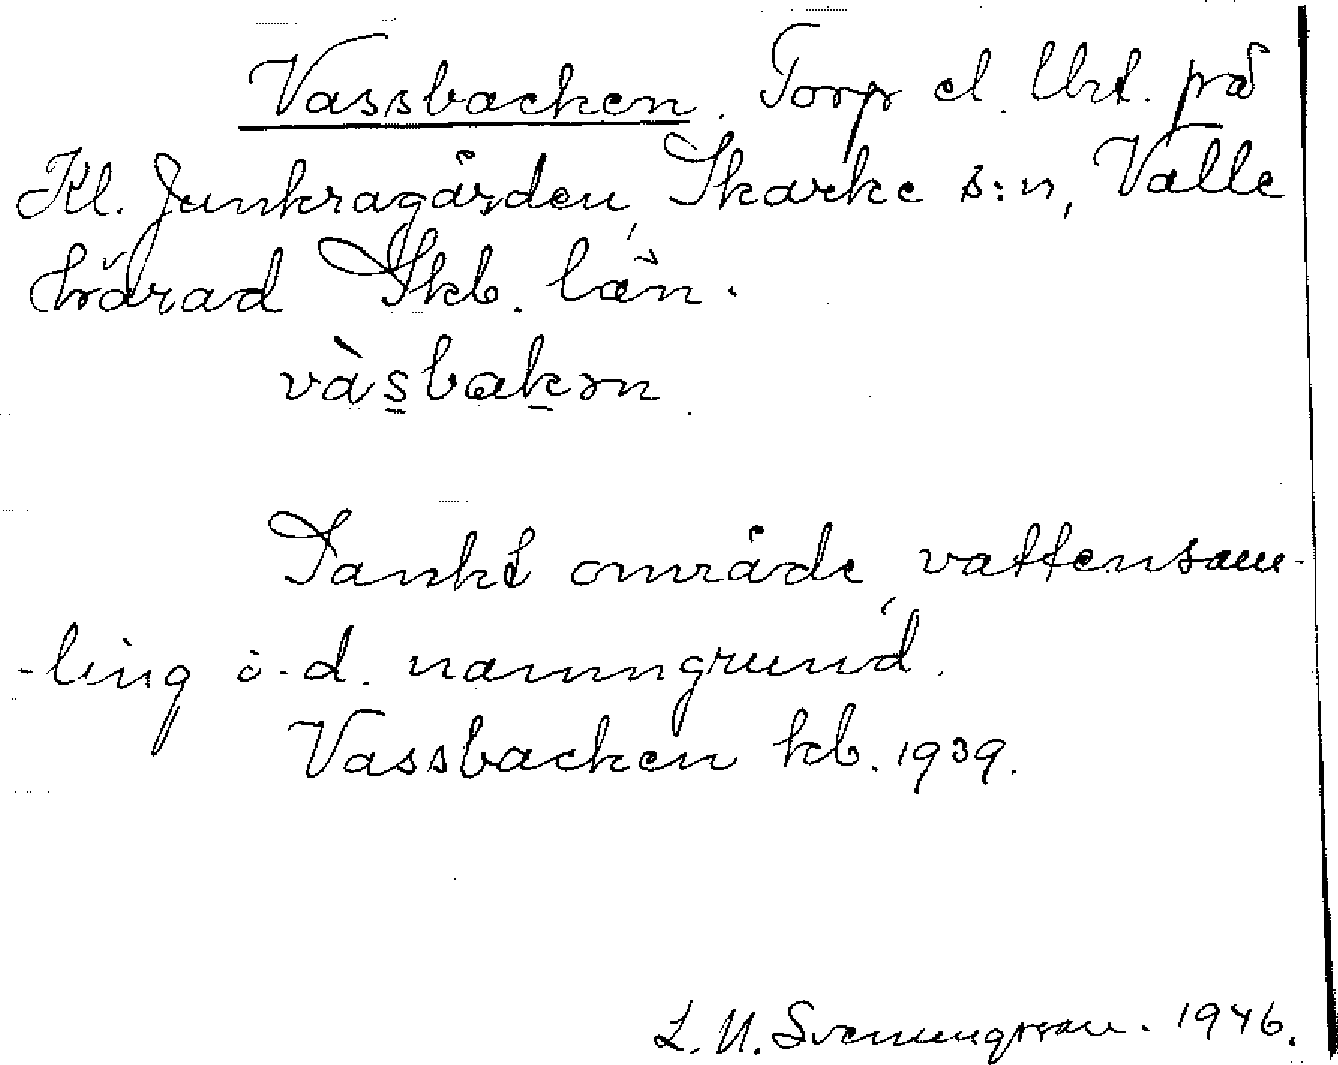 Vassbacken. Torp el. Utst. på
Kl. Junkragården, Skarke s:n, Valle
härad Skb. län.
vàs̲bak̲ən
Sankt område, vattensam-
-ling o.d. namngrund.
Vassbacken kb. 1939.
L. N. Svenungsson. 1946.